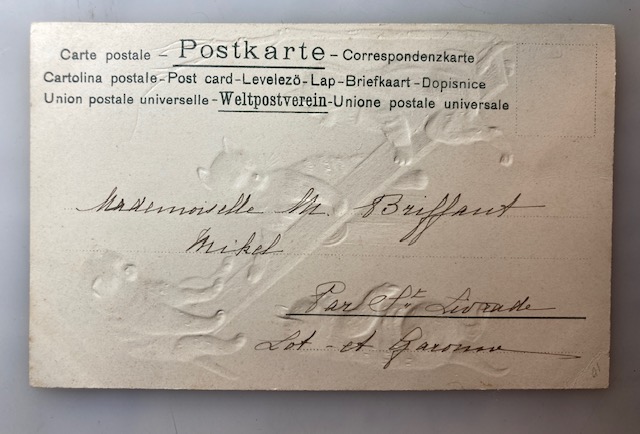 Carte postale – Postkarte – Correspondenzkarte
Cartolina postale-Post card-Levelező-Lap-Briefkaart-Dopisnice
Union postale universelle-Weltpostverein-Unione postale universale
Mademoiselle M. Briffaut
Mikel
Par St Livrade
Lot-et Garonne